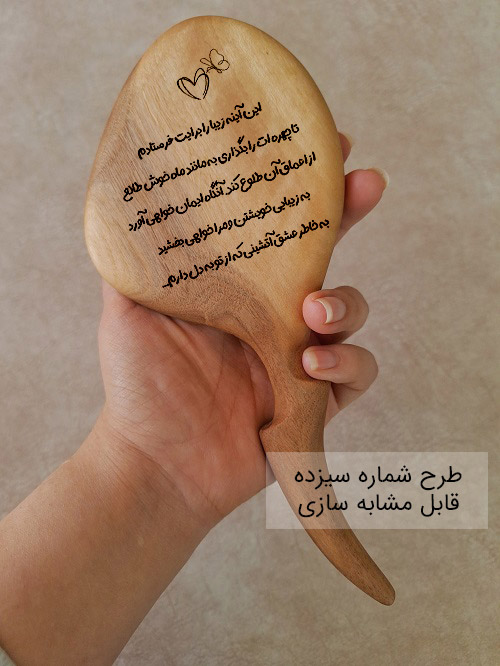 این آینه زیبا را برایت فرستادم
تا چهره ات را بگذاری به مانند ماه خوش طالع
از اعماق آن طلوع کند آنگاه ایمان خواهی آورد
به زیبایی خویشتن و مرا خواهی بخشید
به خاطر عشق آتشینی که از تو به دل دارم...
طرح شماره سیزده
قابل مشابه سازی